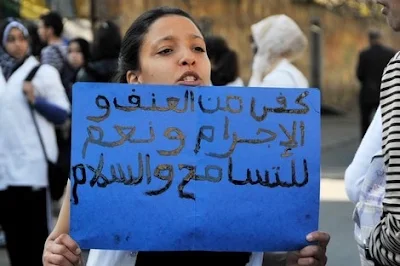 كفى من العنف و
الإجرام و نعم
للتسامح والسلام